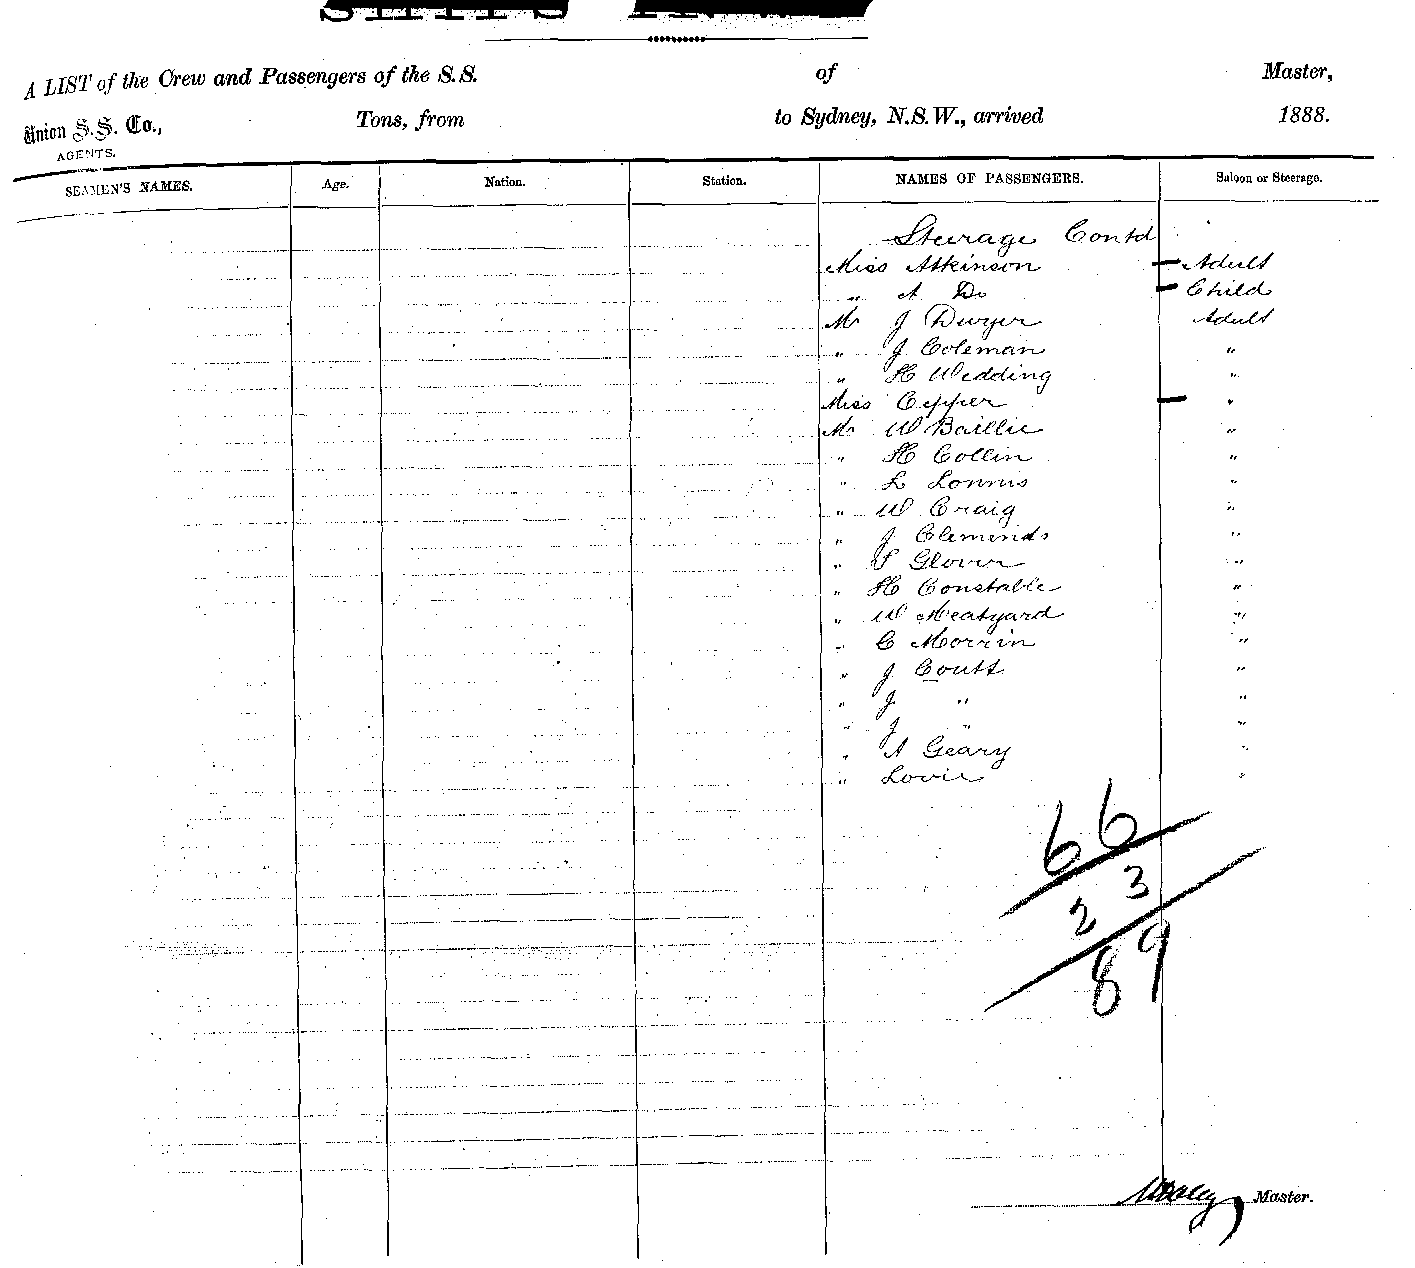 A LIST of the Crew and Passengers of the S.S. of Master,
Union S.S. Co., Tons, from to Sydney, N.S.W., arrived 1888.
AGENTS.
SEAMEN'S NAMES. Age. Nation. Station. NAMES OF PASSENGERS. Saloon or Steerage.
Steerage Contd
Miss Atkinson Adult
" A Do Child
Mr J Dwyer Adult
" J Coleman "
" H Wedding "
Miss Cepper "
Mr W Baillie "
" H Collin "
" L Lonnis "
" W Craig "
" J Clemends "
" Glover "
" H Constable "
" W Meatyard "
" C Morrin "
" J Coutt "
" J " "
" J " "
" A Geary "
" Lovie "
66
23
89
Master.